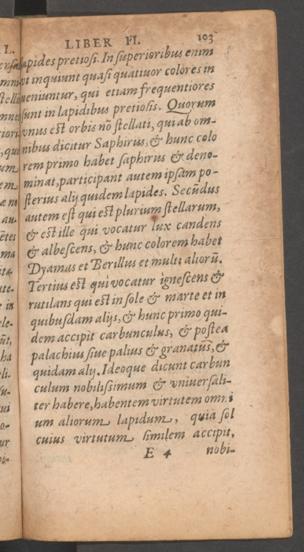 LIBER VI. 103
apides pretiosi. In superioribus enim
vt inquiunt quasi quatiuor colores in
ueniuntur, qui etiam frequentiores
sunt in lapidibus pretiosis. Quorum
vnus est orbis nõ stellati, qui ab om-
nibus dicitur Saphirus, & hunc colo
rem primo habet saphirus & deno-
minat, participant autem ipsam po-
sterius alij quidem lapides. Secũdus
autem est qui est plurium stellarum,
& est ille qui vocatur lux candens
& albescens, & hunc colorem habet
Dyamas et Berillus et multi aliorũ.
Tertius est qui vocatur ignescens &
rutilans qui est in sole & marte et in
quibusdam alijs, & hunc primo qui-
dem accipit carbunculus, & postea
palachius siue palius & granatus, &
quidam alij. Ideoque dicunt carbun
culum nobilissimum & vniuersali-
ter habere, habentem virtutem omni
um aliorum lapidum, quia sol
cuius virtutum similem accipit,
E 4 nobi-